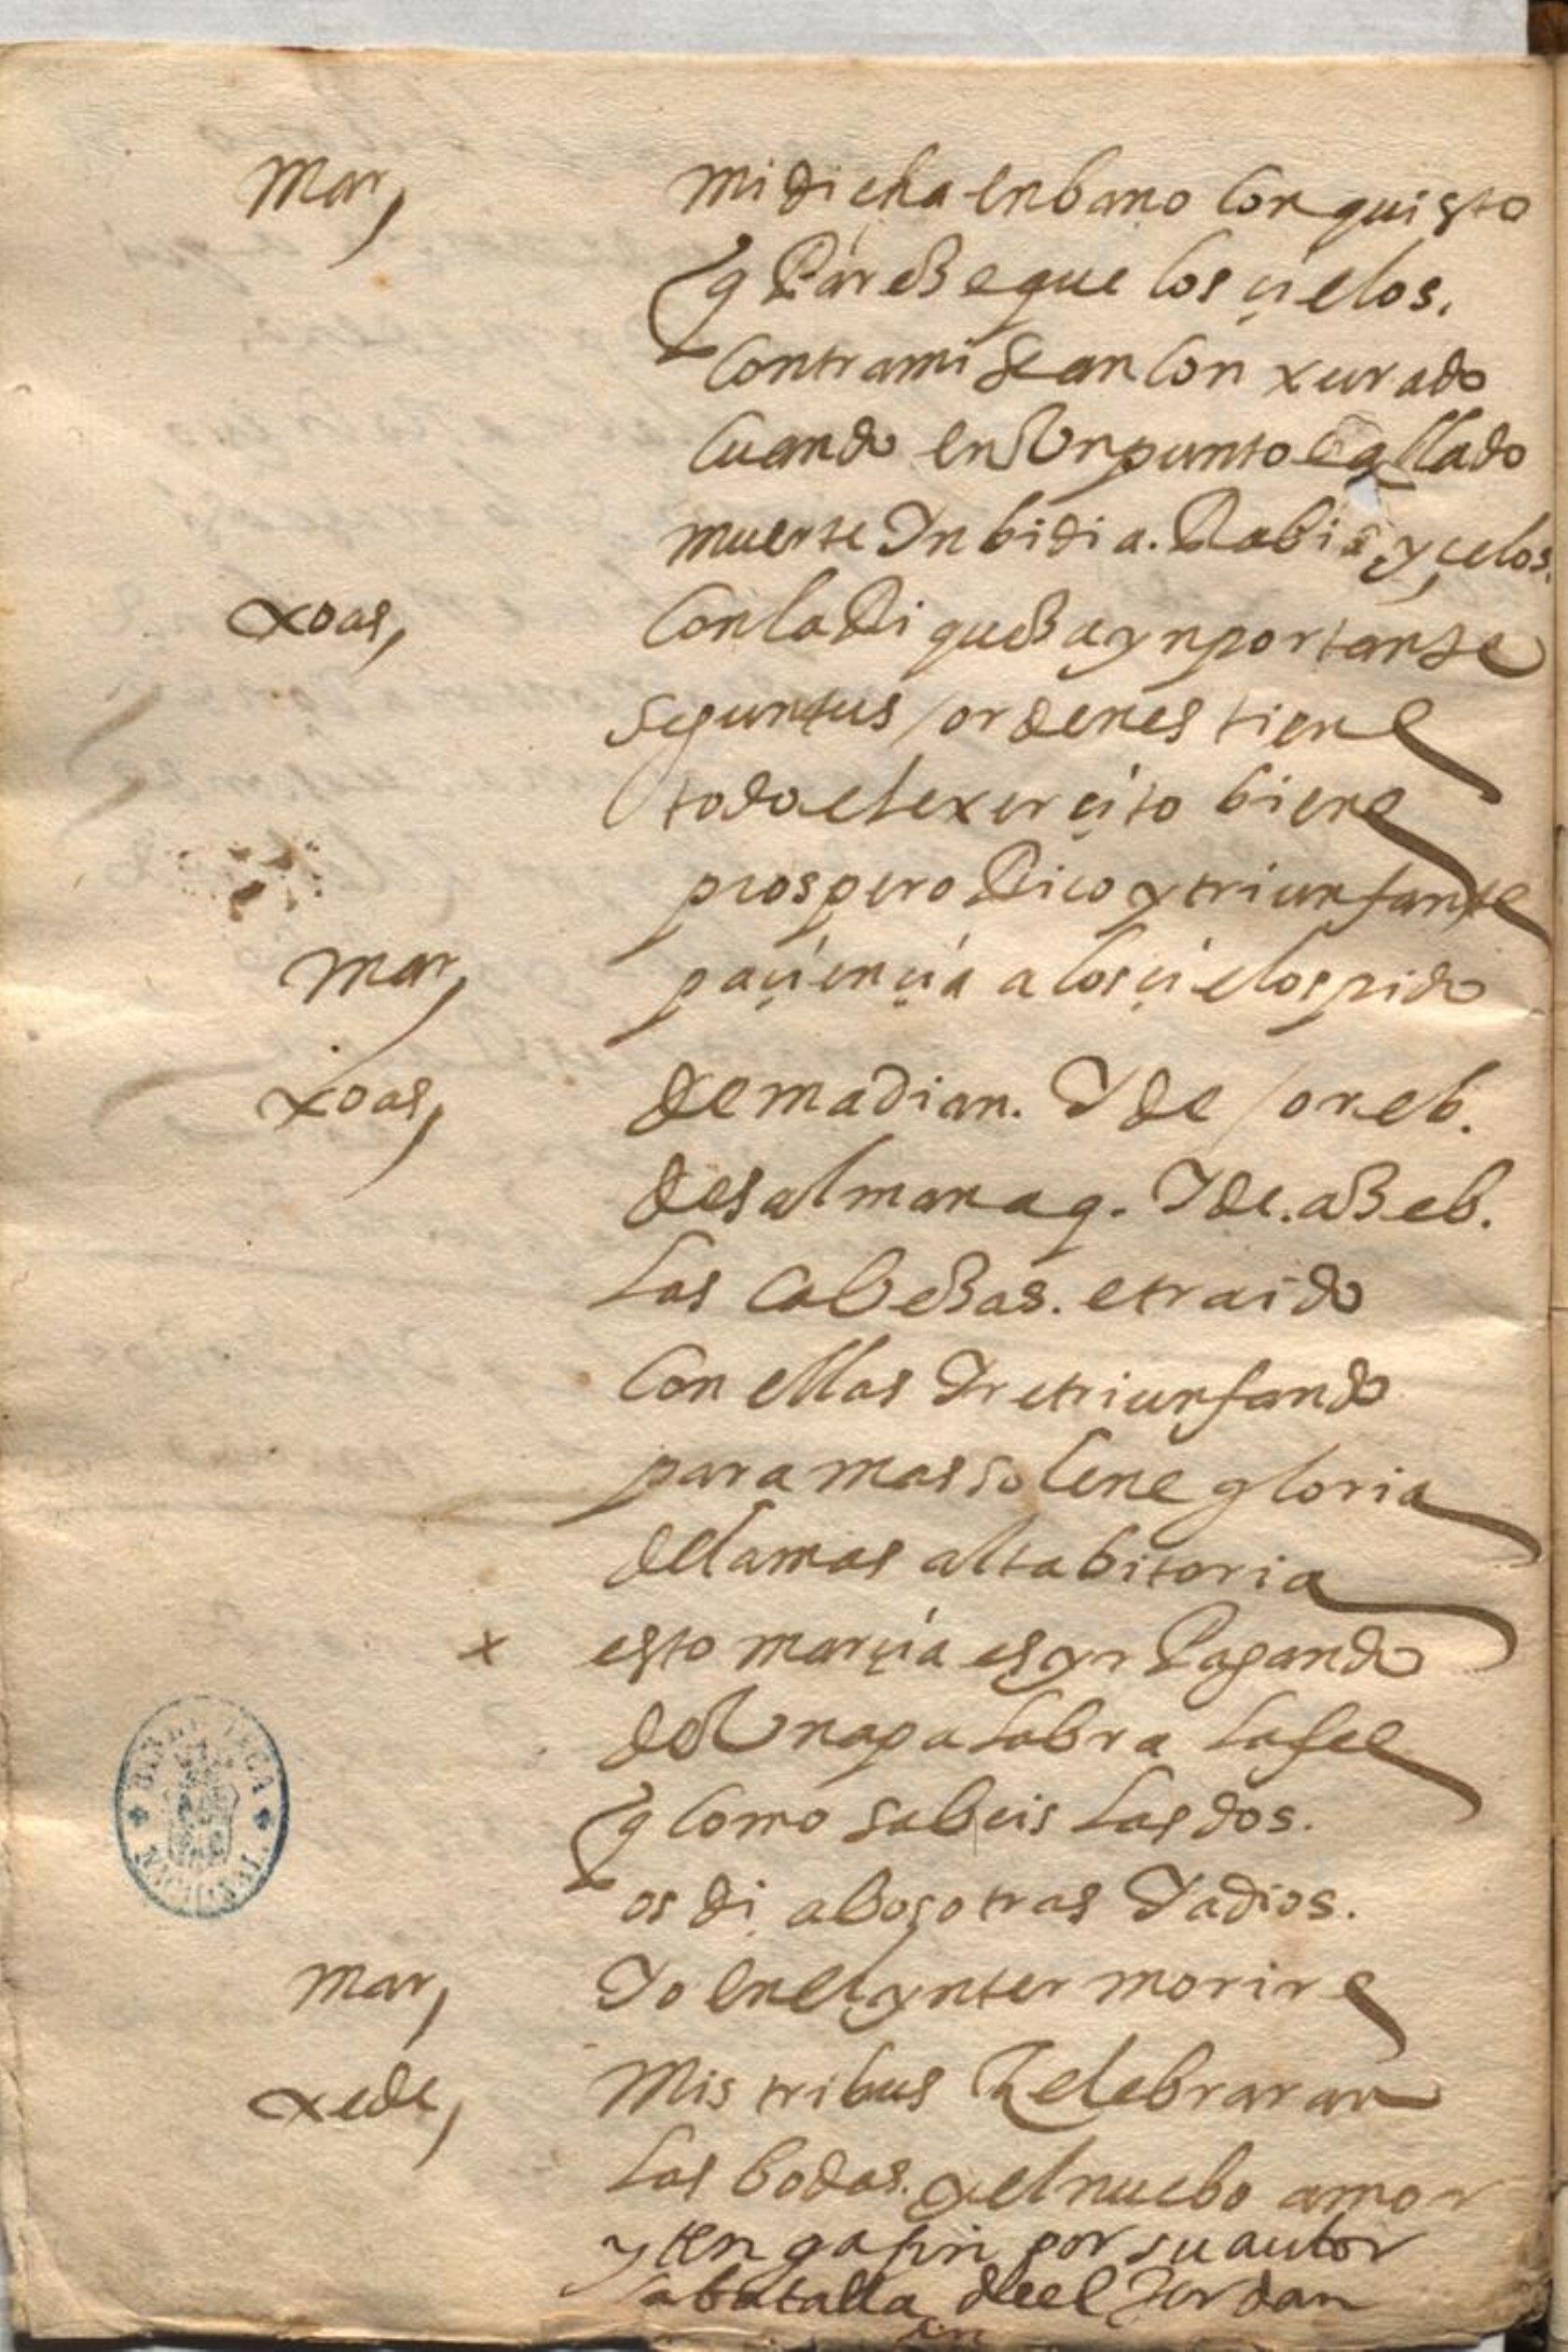 Mar, mi dicha en bano conquisto
q Pareze que los çielos.
Contra mi se an con xurado
Cuando en Un punto e allado
muerte Inbidia. Rabia y çelos.
xoas, Con la Riqueza ynportante
segun tus ordenes tiene
todo el exerçito biene
prospero Rico y triunfante
Mar, paçiençia a los çielos pido
xoas, de madian. Y de oreb.
de salmanaq. Y de. azeb.
Las Cabezas. e traido
Con ellas Yre triunfando
para mas solene gloria
de la mas alta bitoria
x esto marçia es yr Pagando
de Una palabra La fee
q Como sabeis Las dos.
os di a bosotras Y adios.
Mar, Yo en el ynter morire
xede, Mis tribus Zelebraran
Las bodas. y el nuebo amor
y tenga fin por su autor
la batalla deel Jordan
BIBLIOTECA NACIONAL